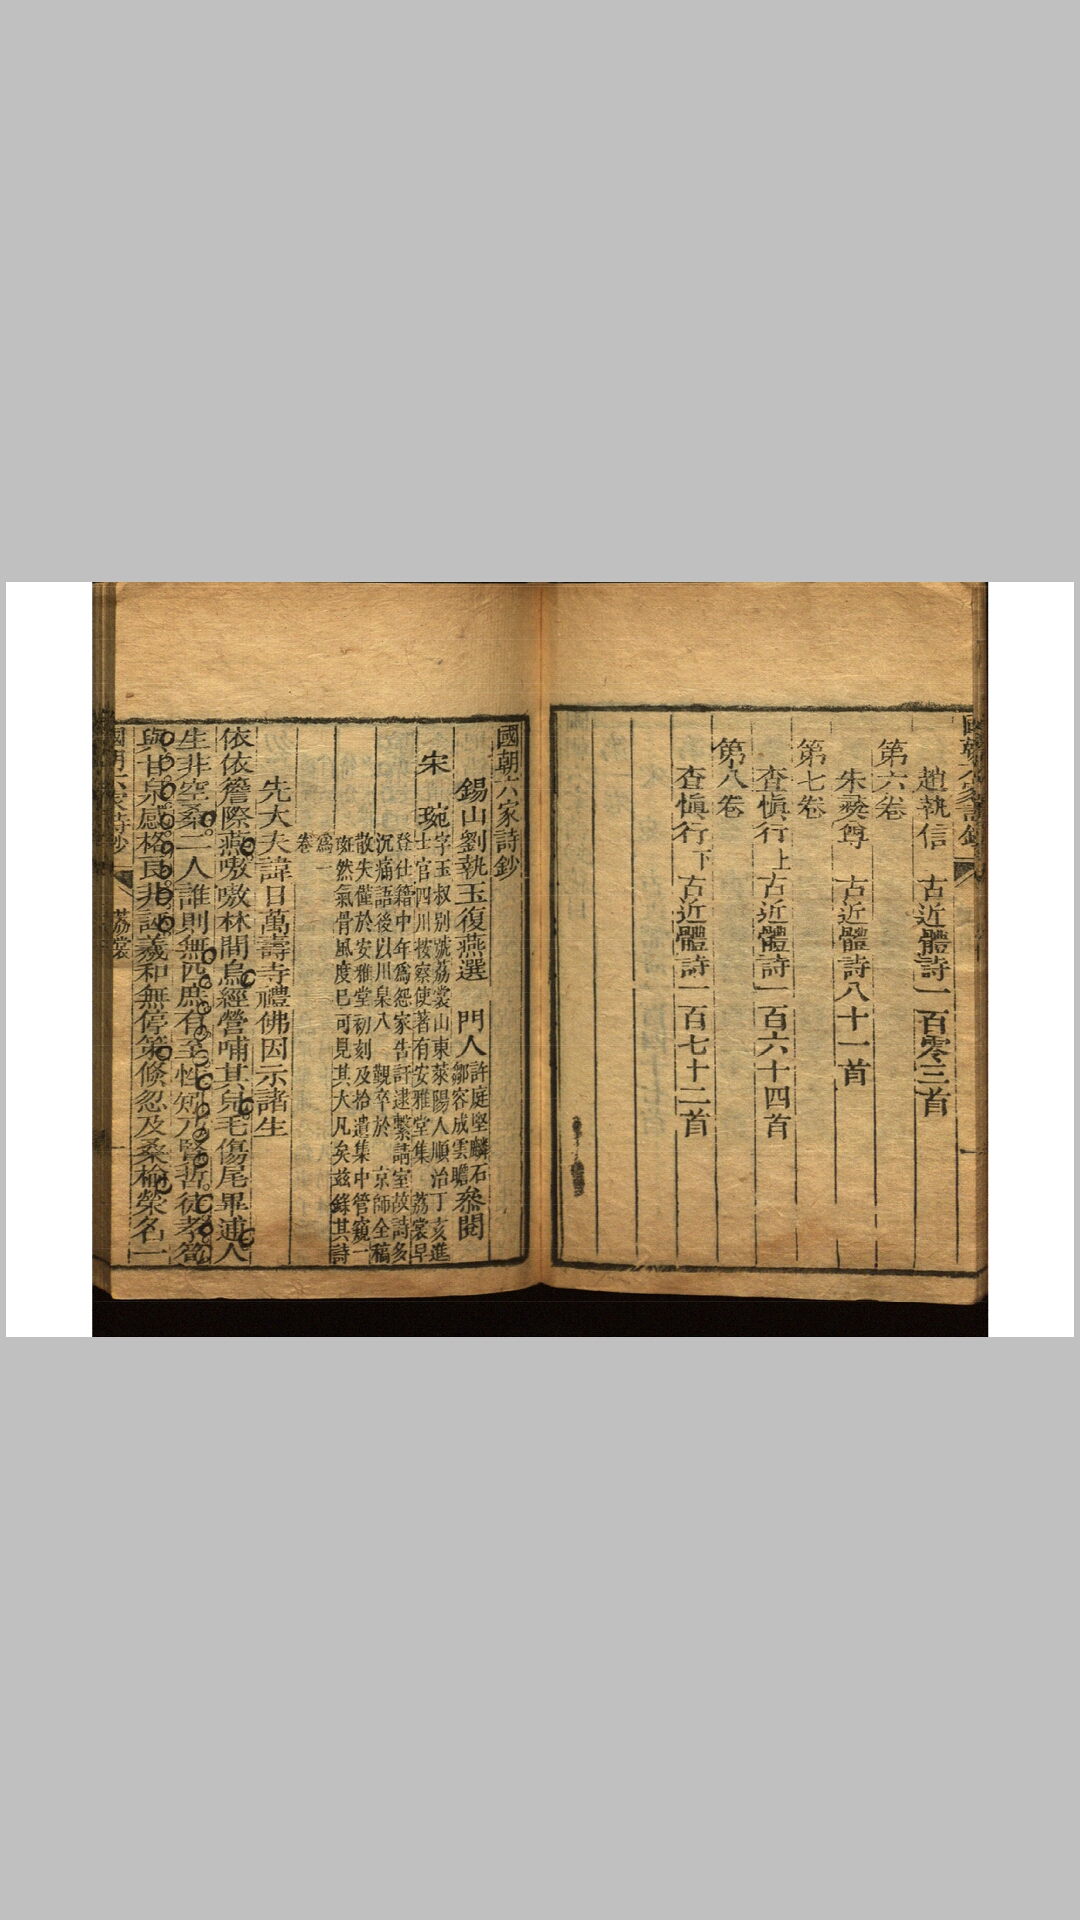 趙執信　古近體詩一百零三首
第六卷
朱彝尊　古近體詩八十一首
第七卷
查慎行上　古近體詩一百六十四首
第八卷
查慎行下　古近體詩一百七十二首
國朝六家詩鈔
錫山劉執玉復燕選　門人許庭堅麟石鄒容成雲瞻叅閱
宋　琬　字玉叔別號荔裳山東萊陽人順治丁亥進
士官四川按察使著有安雅堂集　荔裳早
登仕籍中年爲怨家告訐逮繫請室故詩多
沉痛語後以川臬入　覲卒於　京師全稿
散失僅於安雅堂初刻及拾遺集中管窺一
斑然氣骨風度已可見其大凡矣兹錄其詩
爲一
卷
先大夫諱日萬壽寺禮佛因示諸生
依依簷際燕嗷嗷林間烏經營哺其兒毛傷尾畢逋人
生非空桑二人誰則無匹庶有至性矧乃賢哲徒孝筍
與甘泉感格良非誣羲和無停策倏忽及桑榆榮名一
國朝六家詩鈔
荔裳
一